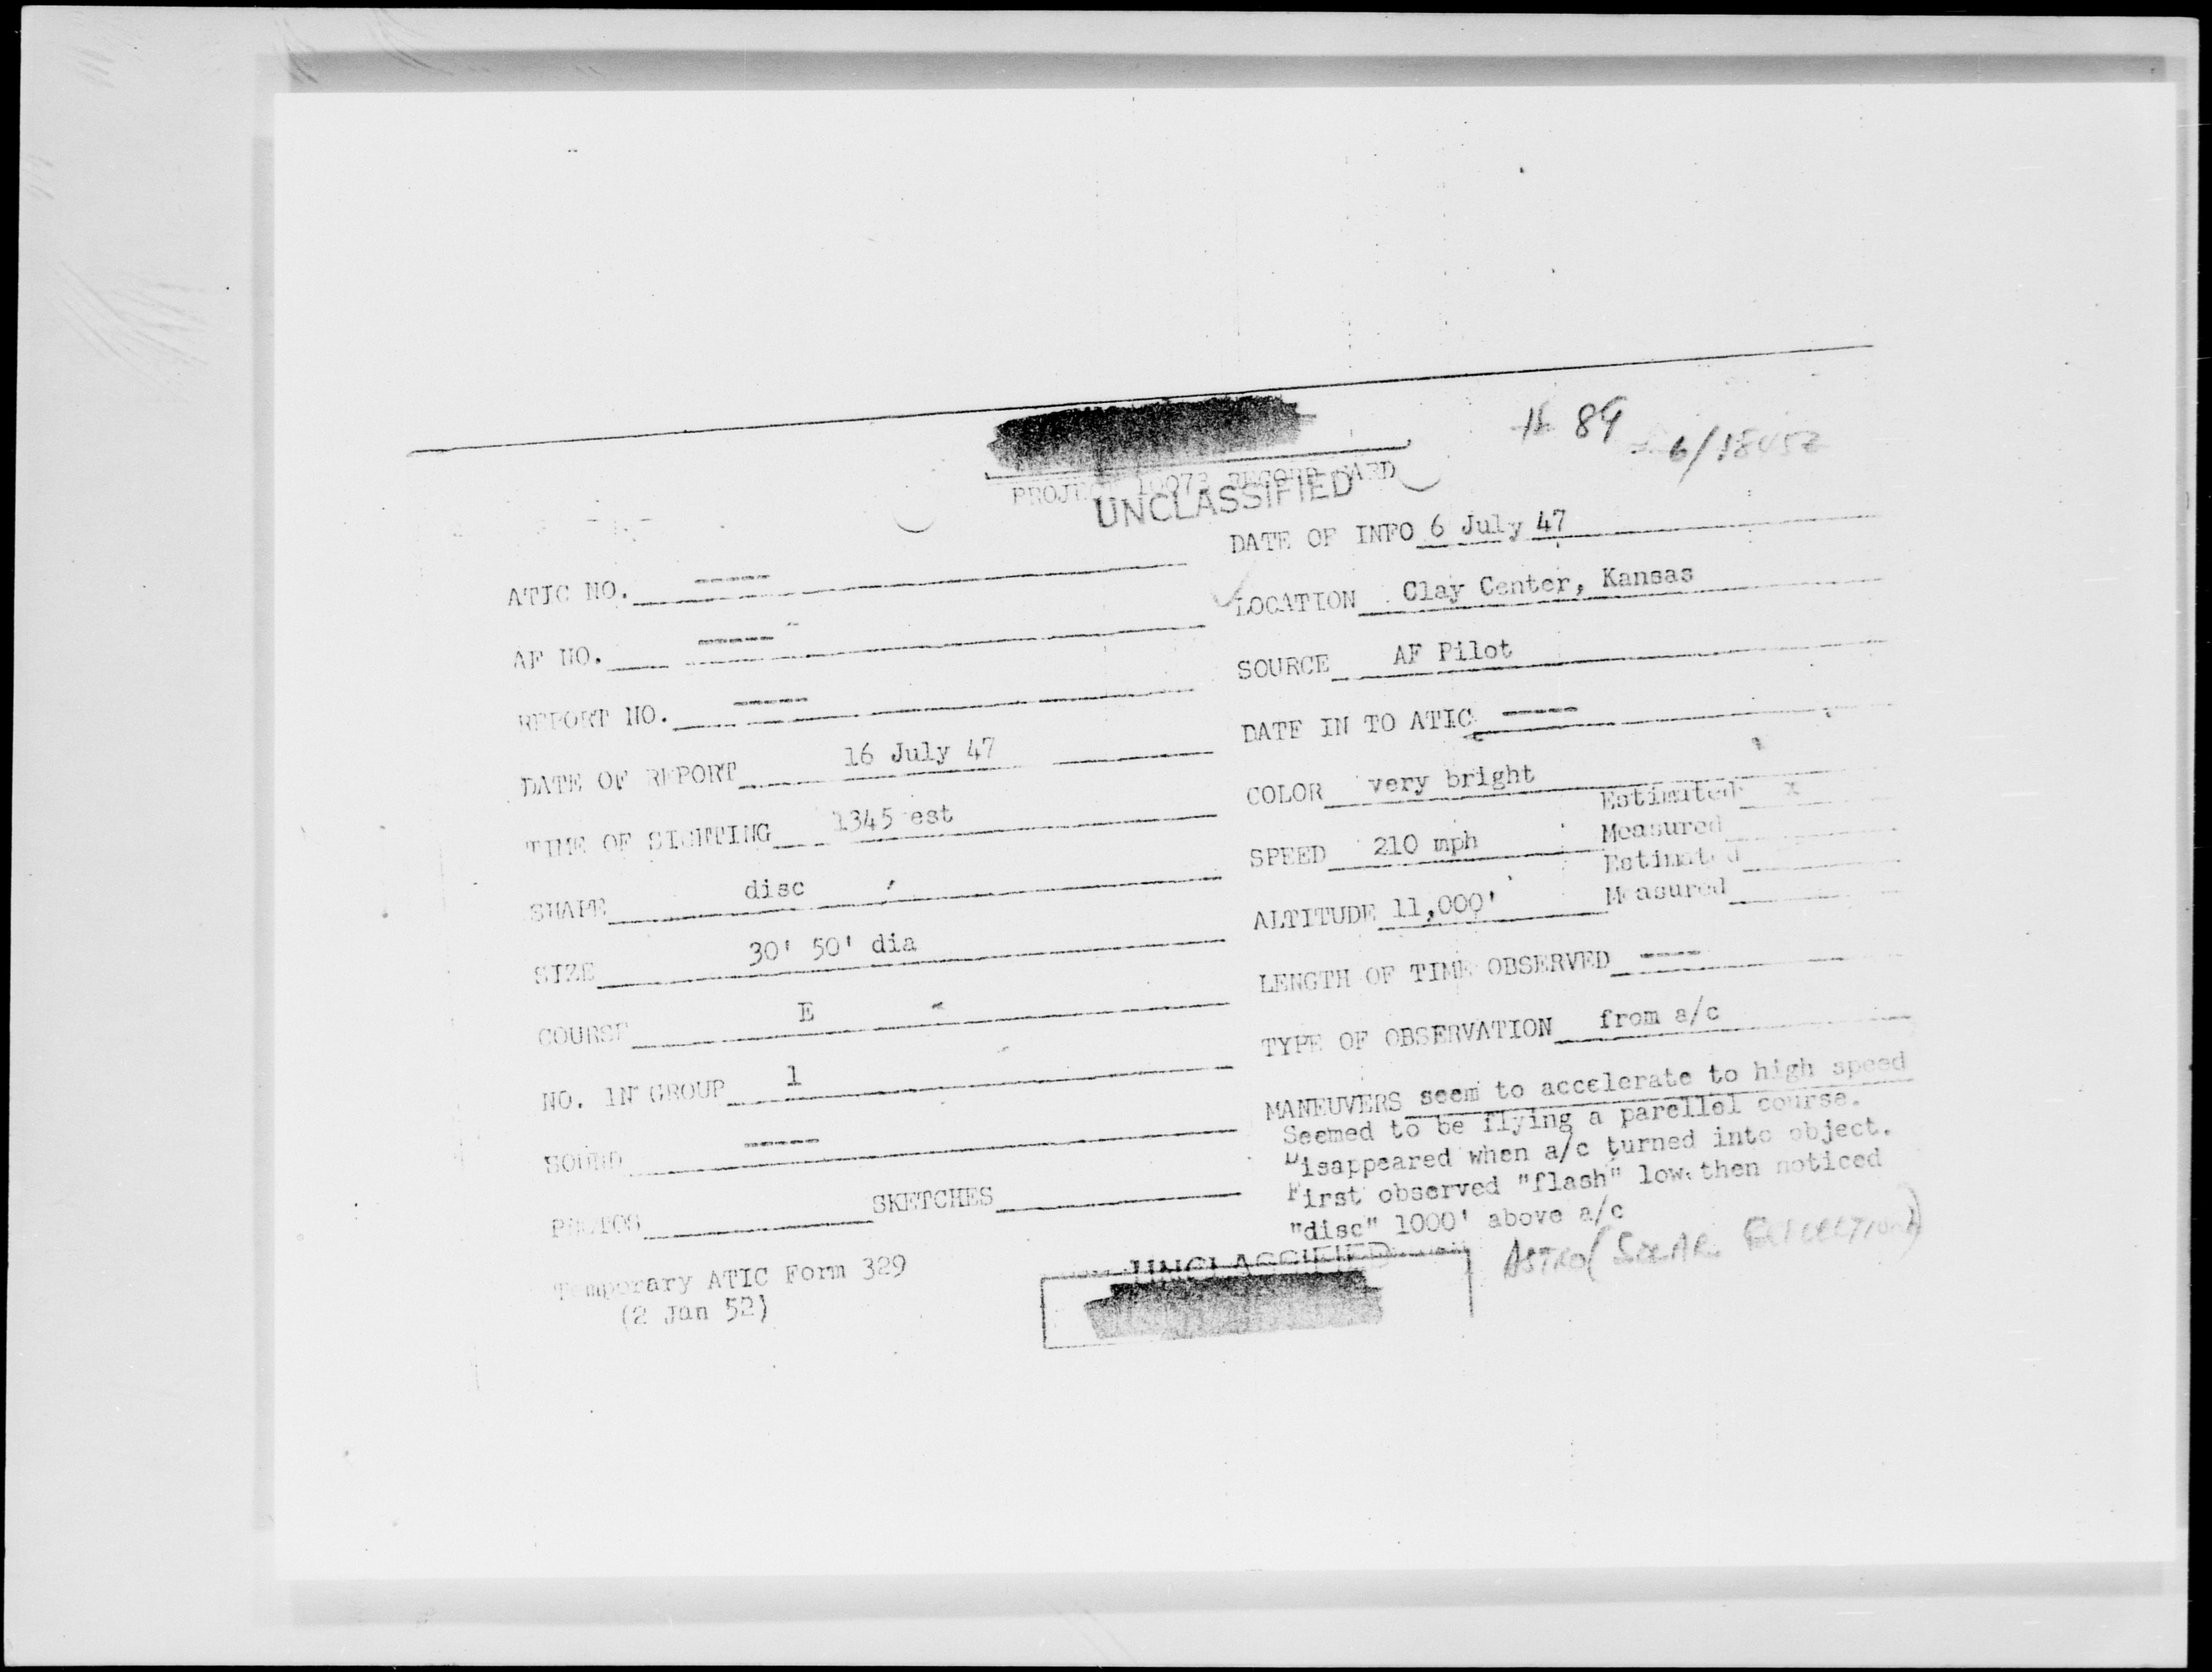 # 89
6/1845Z
PROJECT 10073 RECORD CARD
UNCLASSIFIED
ATIC NO. -----
AF NO. -----
REPORT NO. -----
DATE OF REPORT 16 July 47
TIME OF SIGHTING 1345 est
SHAPE disc
SIZE 30' 50' dia
COURSE E
NO. IN GROUP 1
SOUND -----
PHOTOS SKETCHES
Temporary ATIC Form 329
(2 Jan 52)
DATE OF INFO 6 July 47
LOCATION Clay Center, Kansas
SOURCE AF Pilot
DATE IN TO ATIC -----
COLOR very bright
Estimated x
SPEED 210 mph Measured
Estimated
ALTITUDE 11,000' Measured
LENGTH OF TIME OBSERVED ----
TYPE OF OBSERVATION from a/c
MANEUVERS seem to accelerate to high speed
Seemed to be flying a parellel course.
Disappeared when a/c turned into object.
First observed "flash" low then noticed
"disc" 1000' above a/c
UNCLASSIFIED
ASTRO (SOLAR